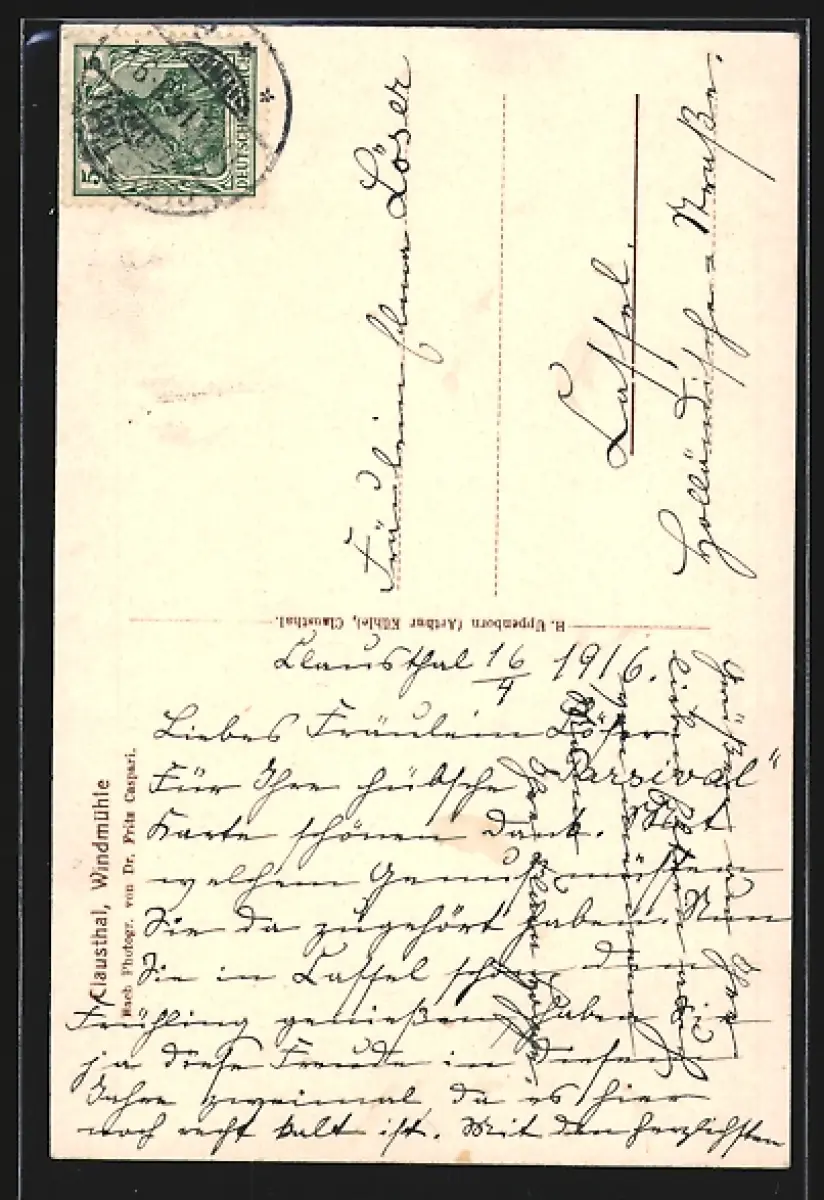 5
DEUTSCHES REICH
Fräulein Erna Löser
Cassel.
Holländische-Straße.
H. Uppenborn (Arthur Kühle), Clausthal.
Clausthal, Windmühle
Nach Photogr. von Dr. Fritz Caspari.
Clausthal 16/4 1916.
Liebes Fräulein Löser
Für Ihre hübsche „Parsival"
Karte schönen Dank. Mit
welchem Genuß müssen
Sie da zugehört haben. Nun
Sie in Cassel schon den
Frühling genießen, haben Sie
ja diese Freude in diesem
Jahre zweimal da es hier
noch recht kalt ist. Mit den herzlichsten
Grüßen an Ihre
lieben und